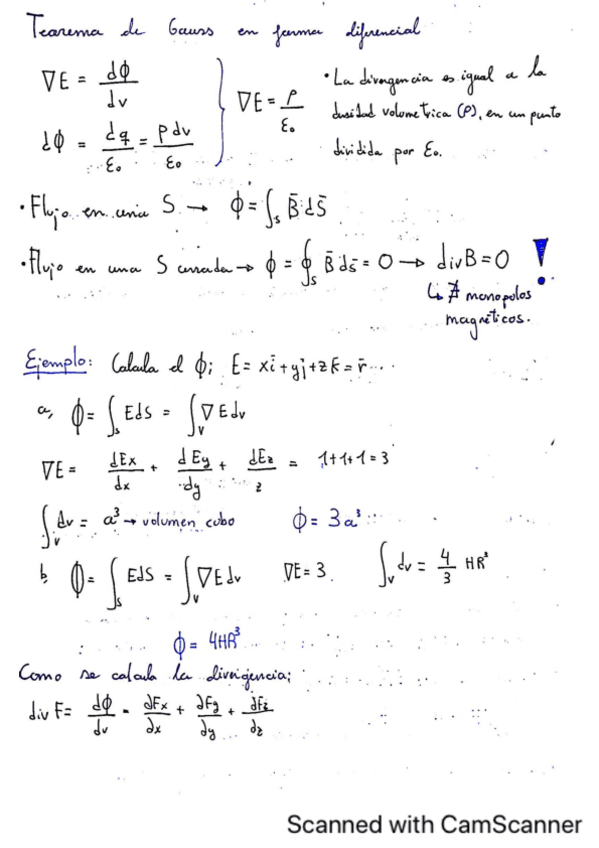 Teorema de Gauss en forma diferencial
∇E = dϕ/dv
dϕ = dq/ε₀ = ρdv/ε₀ } ∇E = ρ/ε₀
• La divergencia es igual a la
densidad volumetrica (ρ), en un punto
dividida por ε₀.
• Flujo en una S → ϕ = ∫ₛ B̄ dS̄
• Flujo en una S cerrada → ϕ = ∮ₛ B̄ ds̄ = 0 → div B = 0 !
↳ ∄ monopolos
magnéticos.
Ejemplo: Calcula el ϕ; E = xī + yj̄ + zk̄ = r̄
a, ϕ = ∫ₛ EdS = ∫ᵥ ∇Edv
∇E = dEx/dx + dEy/dy + dEz/z = 1+1+1 = 3
∫ᵥ dv = a³ → volumen cubo ϕ = 3a³
b, ϕ = ∫ₛ EdS = ∫ᵥ ∇Edv ∇E = 3 ∫ᵥ dv = 4/3 HR³
ϕ = 4HR³
Como se calcula la divergencia;
div F = dϕ/dv = ∂Fx/∂x + ∂Fy/∂y + ∂Fz/∂z
Scanned with CamScanner